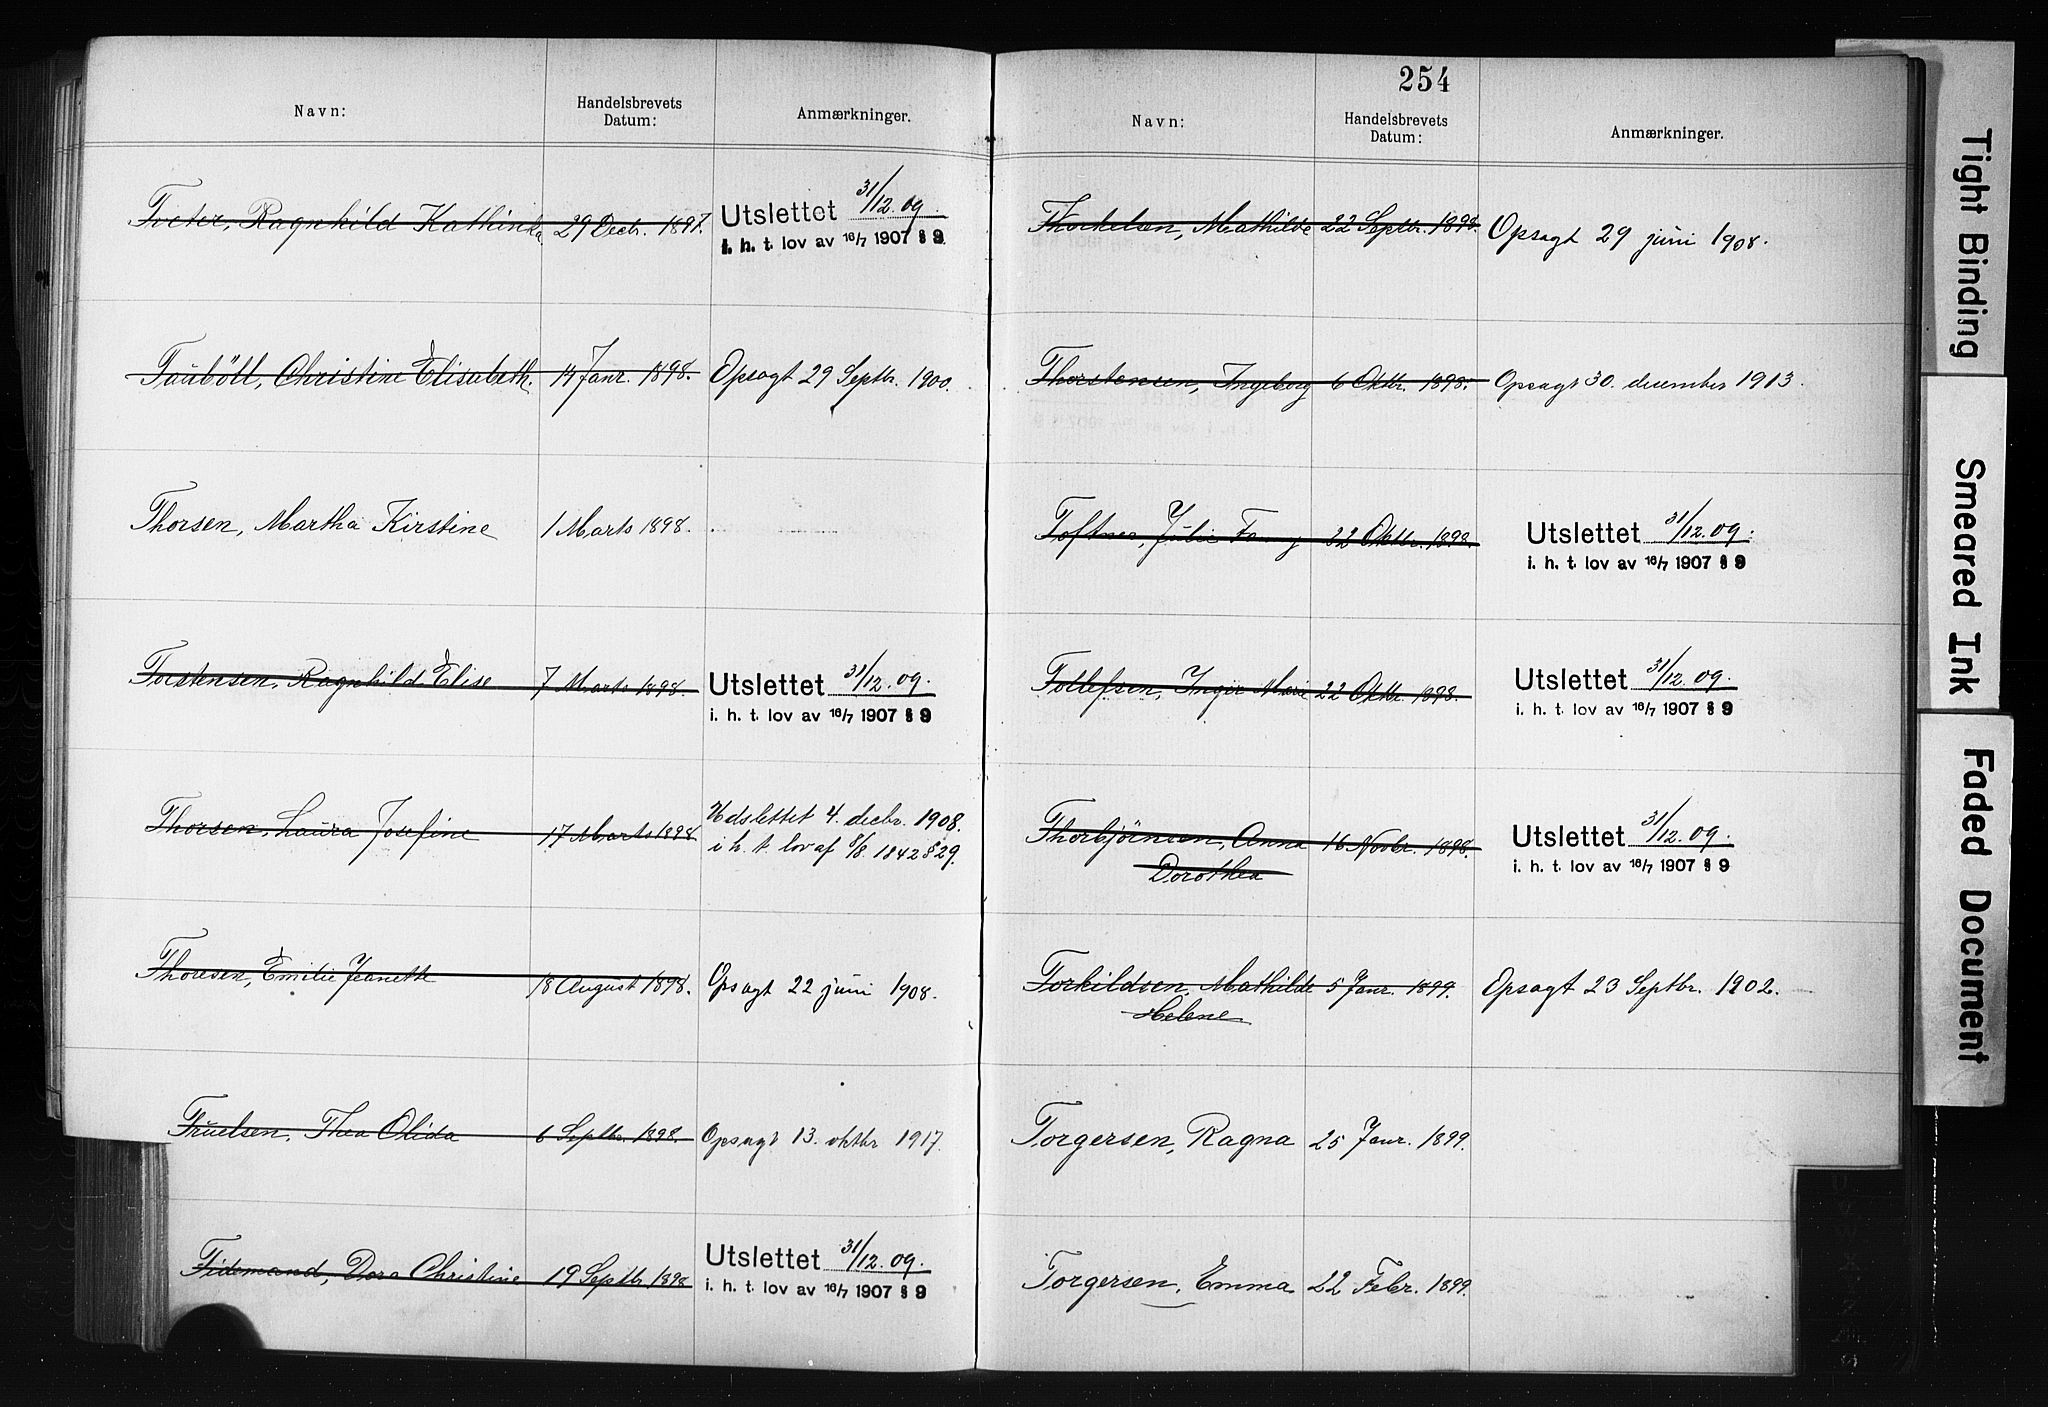 Navn:
Handelsbrevets
Datum:
Anmærkninger.
Tveter, Ragnhild Kathinka 29 Decbr. 1897.
Utslettet 31/12.09.
i. h. t. lov av 16/7 1907 § 9
Taüböll, Christine Elisabeth. 14 Janr. 1898. Opsagt 29 Septbr. 1900.
Thorsen, Martha Kirstine 1 Marts 1898.
Torstensen, Ragnhild Elise 7 Marts 1898.
Utslettet 31/12.09.
i. h. t. lov av 16/7 1907 § 9
Thorsen, Laura Josefine 17 Marts 1898
Udslettet 4. decbr. 1908.
i h. t. lov af 8/8. 1842 § 29.
Thoresen, Emilie Jeanette 18 August 1898. Opsagt 22 juni 1908.
Truelsen, Thea Olida 6 Septbr. 1898. Opsagt 13. oktbr 1917.
Tidemand, Dora Christine 19 Septbr 1898
Utslettet 31/12.09.
i. h. t. lov av 16/7 1907 § 9
254
Navn:
Handelsbrevets
Datum:
Anmærkninger.
Thorkelsen, Mathilde 22 Septbr. 1898. Opsagt 29 juni 1908.
Thorstensen, Ingeborg 6 Oktbr. 1898. Opsagt 30. december 1913.
Toftnes, Julie Fanny 22 Oktbr. 1898.
Utslettet 31/12.09.
i. h. t. lov av 16/7 1907 § 9
Tollefsen, Inger Marie 22 Oktbr. 1898.
Utslettet 31/12.09.
i. h. t. lov av 16/7 1907 § 9
Thorbjörnsen, Anna 16 Novbr. 1898.
Dorothea
Utslettet 31/12.09.
i. h. t. lov av 16/7 1907 § 9
Torkildsen, Mathilde 5 Janr. 1899. Opsagt 23 Septbr. 1902.
Helene
Torgersen, Ragna 25 Janr. 1899.
Torgersen, Emma 22 Febr. 1899.
Tight Binding
Smeared Ink
Faded Document